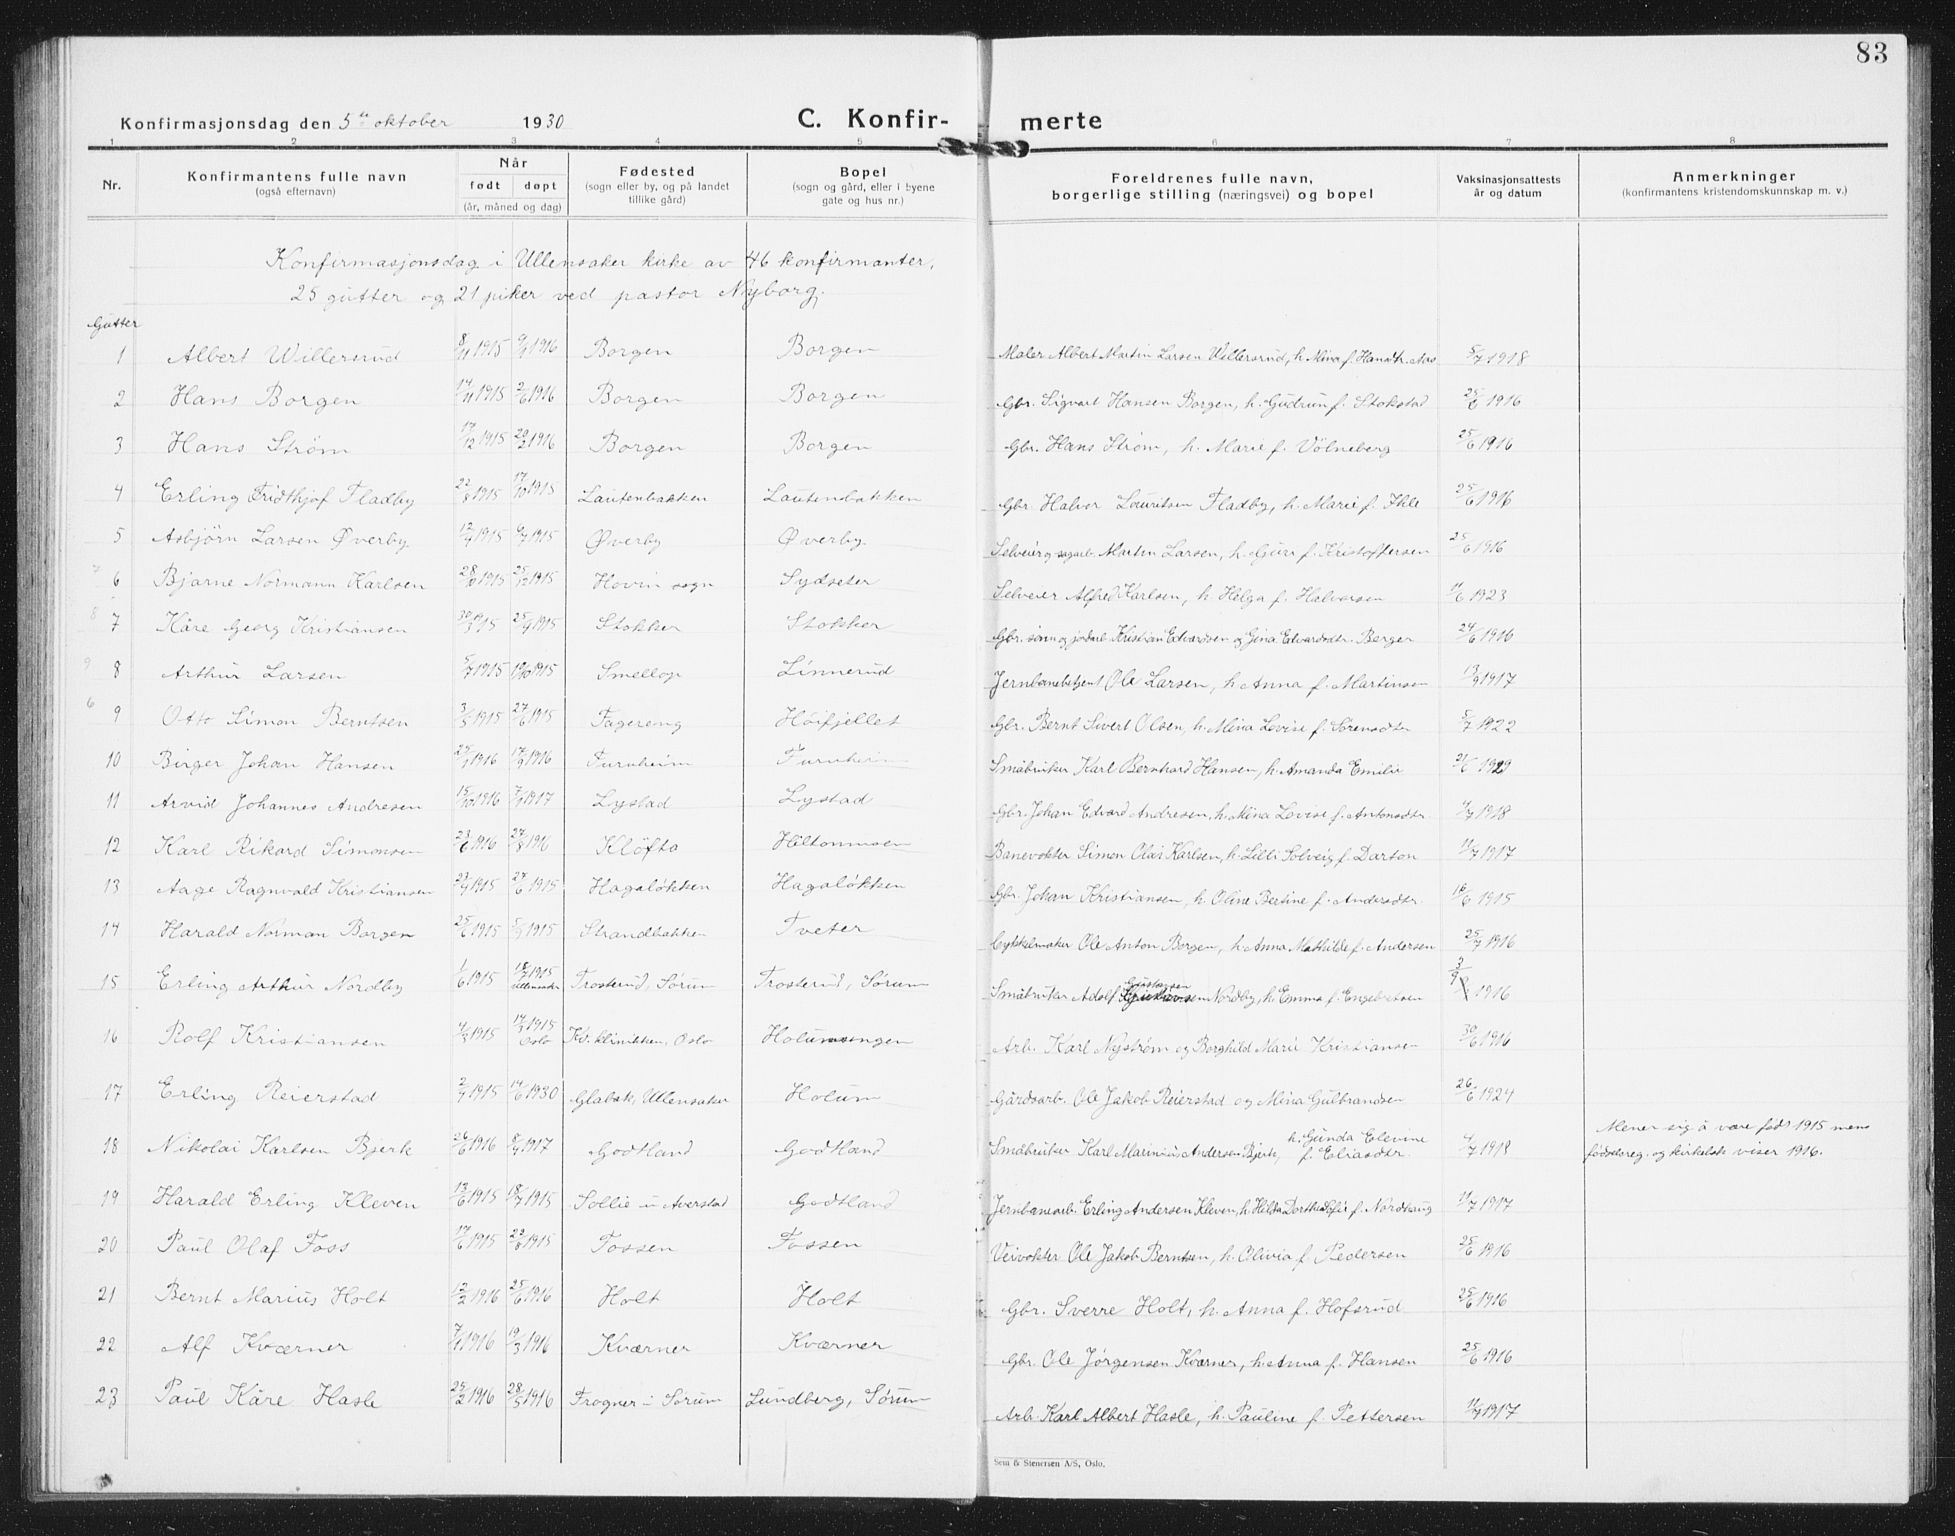 83
Konfirmasjonsdag den 5te oktober 1930 C. Konfir- merte
1 2 3 4 5 6 7 8
Nr. Konfirmantens fulle navn (også efternavn) Når født døpt (år, måned og dag) Fødested (sogn eller by, og på landet tillike gård) Bopel (sogn og gård, eller i byene gate og hus nr.) Foreldrenes fulle navn, borgerlige stilling (næringsvei) og bopel Vaksinasjonsattests år og datum Anmerkninger (konfirmantens kristendomskunnskap m. v.)
Konfirmasjonsdag i Ullensaker kirke av 46 konfirmanter,
25 gutter og 21 piker ved pastor Nyborg.
Gutter
1 Albert Willersrud 8/11 1915 9/1 1916 Borgen Borgen Maler Albert Martin Larsen Willersrud, h. Mina f. Hansdtr. Aas 5/7 1918
2 Hans Borgen 14/11 1915 2/6 1916 Borgen Borgen Gbr. Sigvart Hansen Borgen, h. Gudrun f. Stokstad 25/6 1916
3 Hans Strøm 17/12 1915 20/2 1916 Borgen Borgen Gbr. Hans Strøm, h. Marie f. Völneberg 25/6 1916
4 Erling Fridthjof Fladby 22/8 1915 17/10 1915 Lautenbakken Lautenbakken Gbr. Halvor Lauritsen Fladby, h. Marie f. Ihle 25/6 1916
5 Asbjörn Larsen Øverby 1915 1915 Øverby Øverby Selveier og sagarb. Martin Larsen, h. Guri f. Kristoffersen 25/6 1916
7 6 Bjarne Normann Karlsen 1915 25/12 1915 Hovin sogn Sydseter Selveier Alfred Karlsen, h. Helga f. Halvorsen 11/6 1923
8 7 Kåre Georg Kristiansen 1915 1915 Stokker Stokker Gbr. sønn og jordarb. Kristian Edvardsen og Gina Edvardsdtr. Berger 24/6 1916
9 8 Arthur Larsen 5/7 1915 1915 Smellop Linnerud Jernbanebetjent Ole Larsen, h. Anna f. Martinsen 13/9 1917
6 9 Otto Simon Berntsen 3/5 1915 27/6 1915 Fagereng Höifjellet Gbr. Bernt Sivert Olsen, h. Mina Lovise f. Sörensdtr 5/7 1922
10 Birger Johan Hansen 25/1 1916 1916 Furuheim Furuheim Småbruker Karl Bernhard Hansen, h. Amanda Emilie 21/6 1929
11 Arvid Johannes Andresen 15/10 1916 7/1 1917 Lystad Lystad Gbr. Johan Edvard Andresen, h. Mina Lovise f. Antonsdtr. 4/7 1918
12 Karl Rikard Simonsen 23/6 1916 27/8 1916 Klöfta Hiltonmoen Banevokter Simon Olai Karlsen, h. Lilli Solveig f. Darton 11/7 1917
13 Aage Ragnvald Kristiansen 1915 27/6 1915 Hagalökken Hagalökken Gbr. Johan Kristiansen, h. Oline Bertine f. Andersdtr. 16/6 1915
14 Harald Norman Borgen 25/6 1915 1915 Strandbakken Tveter Cykkelmaker Ole Anton Borgen, h. Anna Mathilde f. Andersen 25/7 1916
15 Erling Arthur Nordby 1/6 1915 18/7 1915 Ullensaker Trosterud, Sørum Trosterud, Sørum Småbruker Adolf Gustavsen Nordby, h. Emma f. Engebretsen 3/9 1916
16 Rolf Kristiansen 4/3 1915 14/3 1915 Oslo Kv. klinikken, Oslo Holumsengen Arb. Karl Nyström og Borghild Marie Kristiansen 30/6 1916
17 Erling Reierstad 1915 14/6 1930 Glabak, Ullensaker Holum Gårdsarb. Ole Jakob Reierstad og Mina Gulbrandsen 26/6 1924
18 Nikolai Karlsen Bjerk 26/6 1916 8/4 1917 Godtland Godtland Småbruker Karl Marinius Andersen Bjerk, h. Gunda Elevine f. Eliasdtr. 4/7 1918 Mener sig å være født 1915 mens fødselsreg. og kirkebok viser 1916.
19 Harald Erling Kleven 13/6 1915 18/7 1915 Sollie u Averstad Godtland Jernbanearb. Erling Andersen Kleven, h. Hilda Dorthea Sofie f. Nordhaug 11/7 1917
20 Paul Olaf Foss 17/6 1915 22/8 1915 Fossen Fossen Veivokter Ole Jakob Berntsen, h. Olivia f. Pedersen 25/6 1916
21 Bernt Marius Holt 12/2 1916 25/6 1916 Holt Holt Gbr. Sverre Holt, h. Anna f. Hofsrud 25/6 1916
22 Alf Kværner 7/1 1916 19/3 1916 Kværner Kværner Gbr. Ole Jørgensen Kværner, h. Anna f. Hansen 25/6 1916
23 Paul Kåre Hasle 25/2 1916 28/5 1916 Frogner i Sørum Lundberg, Sørum Arb. Karl Albert Hasle, h. Pauline f. Pettersen 11/7 1917
Sem & Stenersen A/S, Oslo.